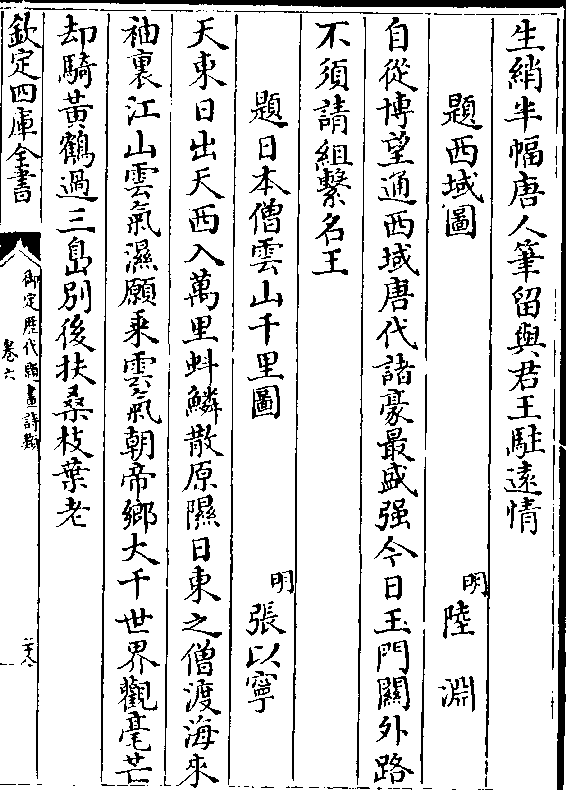 生綃半幅唐人筆留與君王駐遠情
題西域圖　明陸淵
自從博望通西域唐代諸豪最盛强今日玉門關外路
不須請組繫名王
題日本僧雲山千里圖　明張以寧
天東日出天西入萬里虬鱗散原隰日東之僧渡海來
袖裏江山雲氣濕願乘雲氣朝帝鄉大千世界觀毫芒
却騎黃鶴過三島別後扶桑枝葉老
欽定四庫全書　御定歷代題畫詩類　卷六